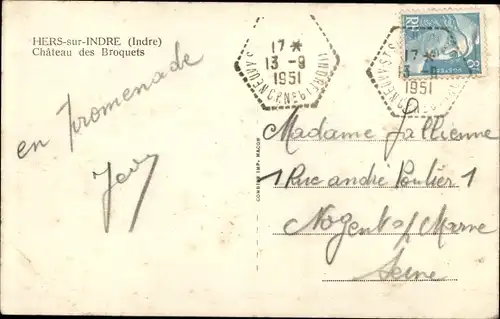 HERS-sur-INDRE (Indre)
Château des Broquets
en promenade
17*
13-9
1951
INDRE
17*
13-9
1951
RF
8F
POSTES
COMBIER IMP. MACON
Madame Jallienne
1 Rue andré Poutier 1
Nogent s/ Marne
Seine